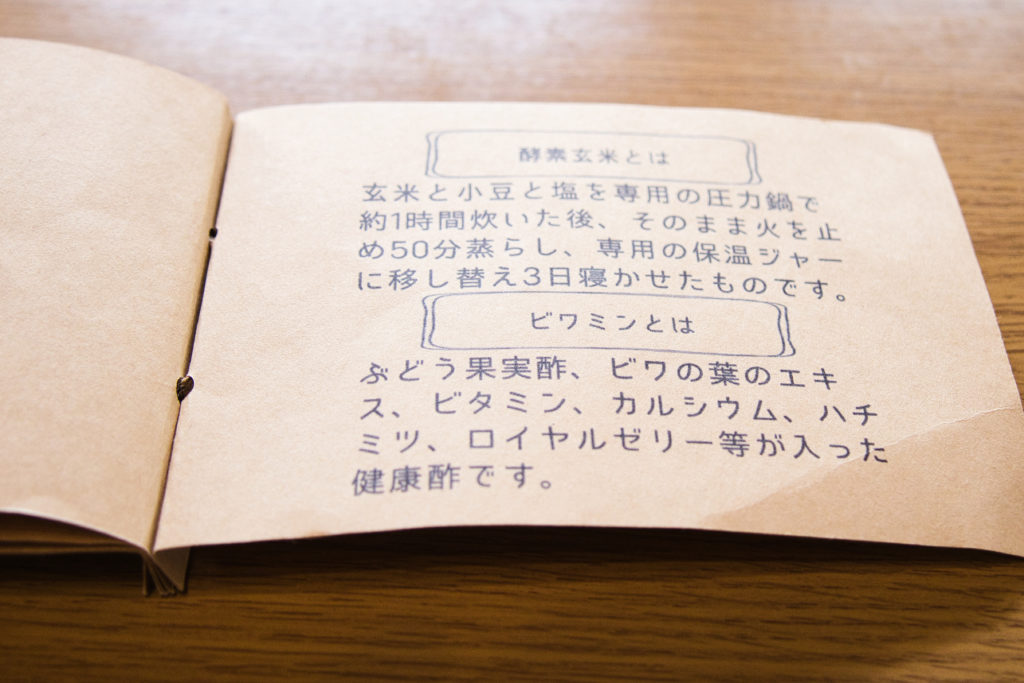 酵素玄米とは
玄米と小豆と塩を専用の圧力鍋で
約1時間炊いた後、そのまま火を止
め50分蒸らし、専用の保温ジャー
に移し替え3日寝かせたものです。
ビワミンとは
ぶどう果実酢、ビワの葉のエキ
ス、ビタミン、カルシウム、ハチ
ミツ、ロイヤルゼリー等が入った
健康酢です。